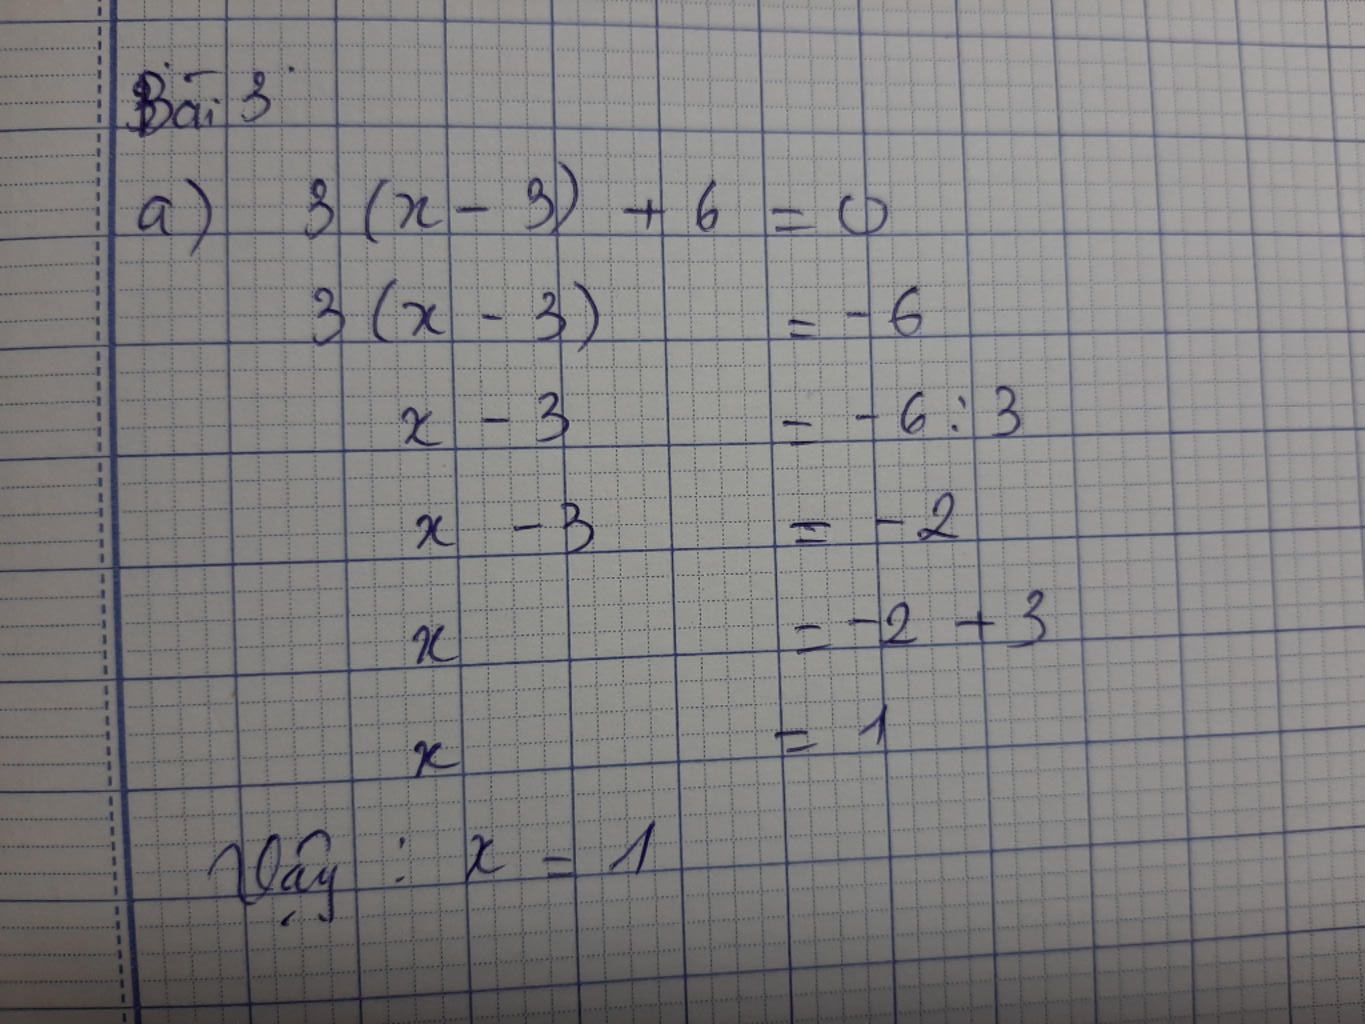 Bài 3
a) 3 (x - 3) + 6 = 0
3 (x - 3) = - 6
x - 3 = - 6 : 3
x - 3 = - 2
x = - 2 + 3
x = 1
Vậy : x = 1